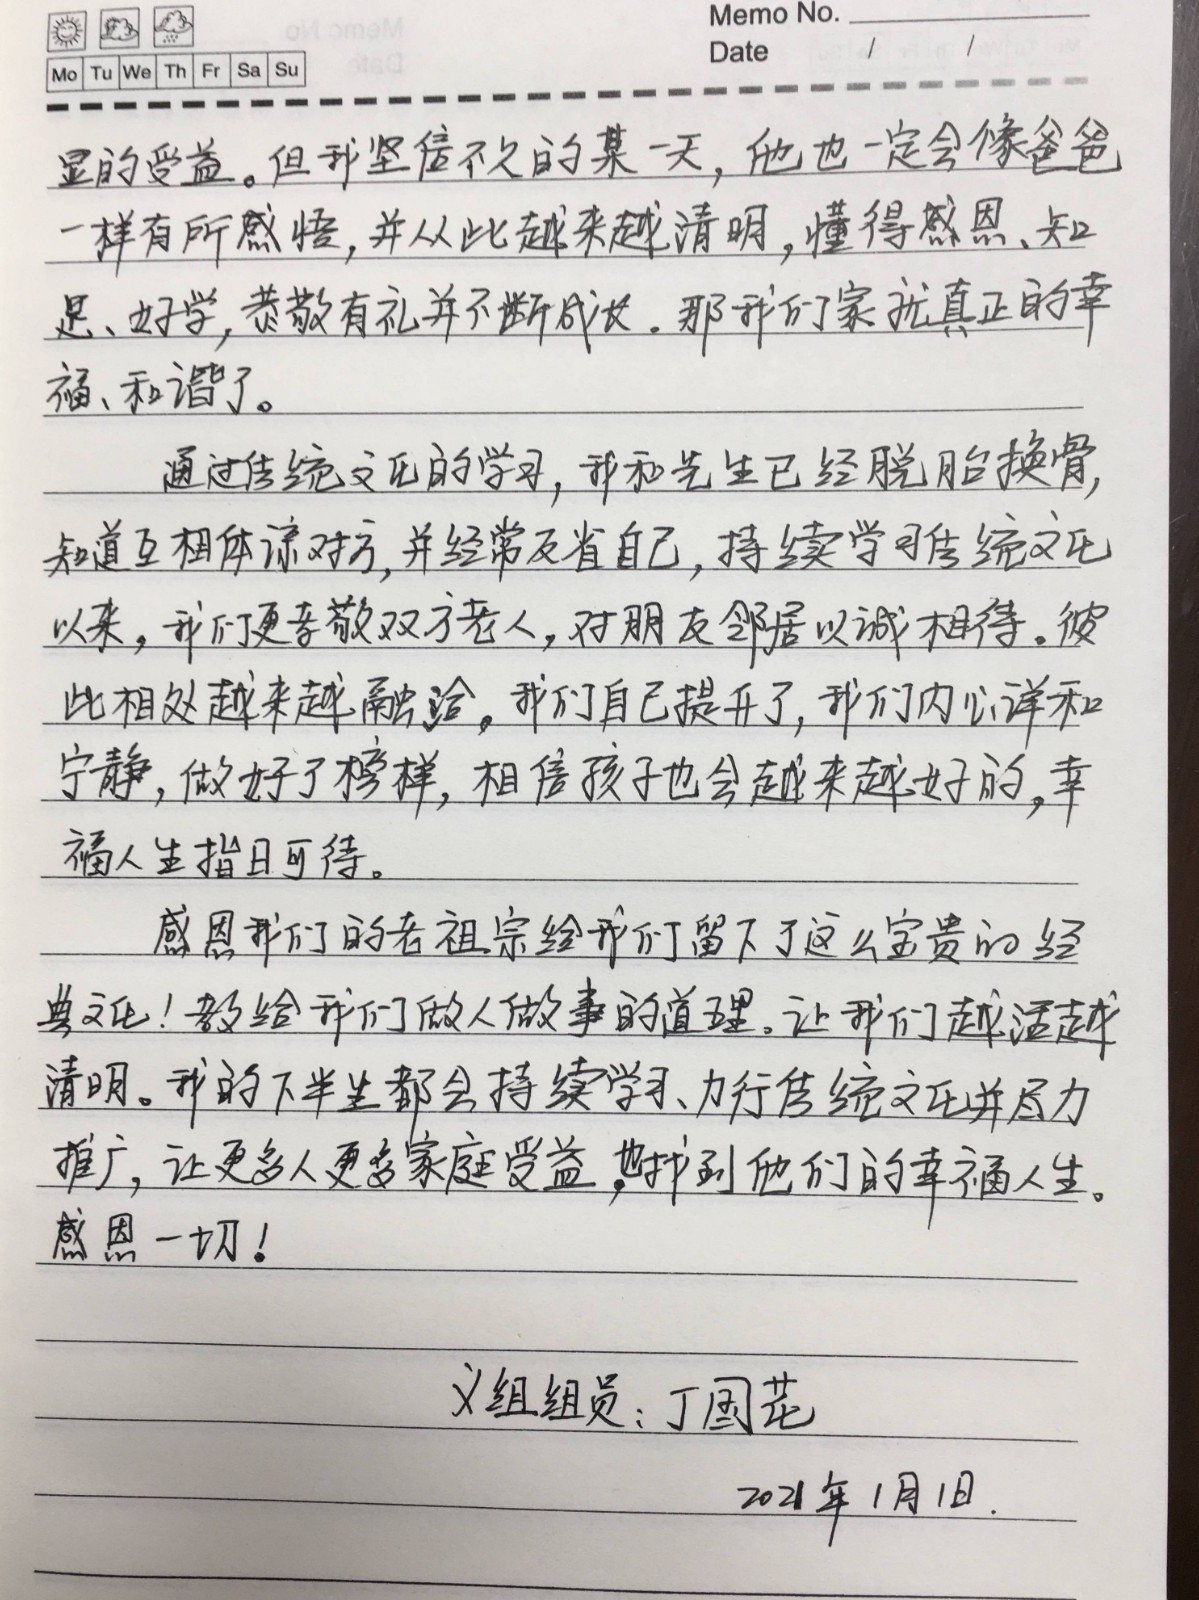 Memo No.
Date / /
Mo Tu We Th Fr Sa Su
显的受益。但我坚信不久的某一天，他也一定会像爸爸
一样有所感悟，并从此越来越清明，懂得感恩、知
足、好学，恭敬有礼并不断成长．那我们家就真正的幸
福、和谐了。
通过传统文化的学习，我和先生已经脱胎换骨，
知道互相体谅对方，并经常反省自己，持续学习传统文化
以来，我们更孝敬双方老人，对朋友邻居以诚相待。彼
此相处越来越融洽。我们自己提升了，我们内心详和
宁静，做好了榜样，相信孩子也会越来越好的，幸
福人生指日可待。
感恩我们的老祖宗给我们留下了这么宝贵的经
典文化！教给我们做人做事的道理。让我们越活越
清明。我的下半生都会持续学习、力行传统文化并尽力
推广，让更多人更多家庭受益，也找到他们的幸福人生。
感恩一切！
义组组员：丁国花
2021年1月1日．